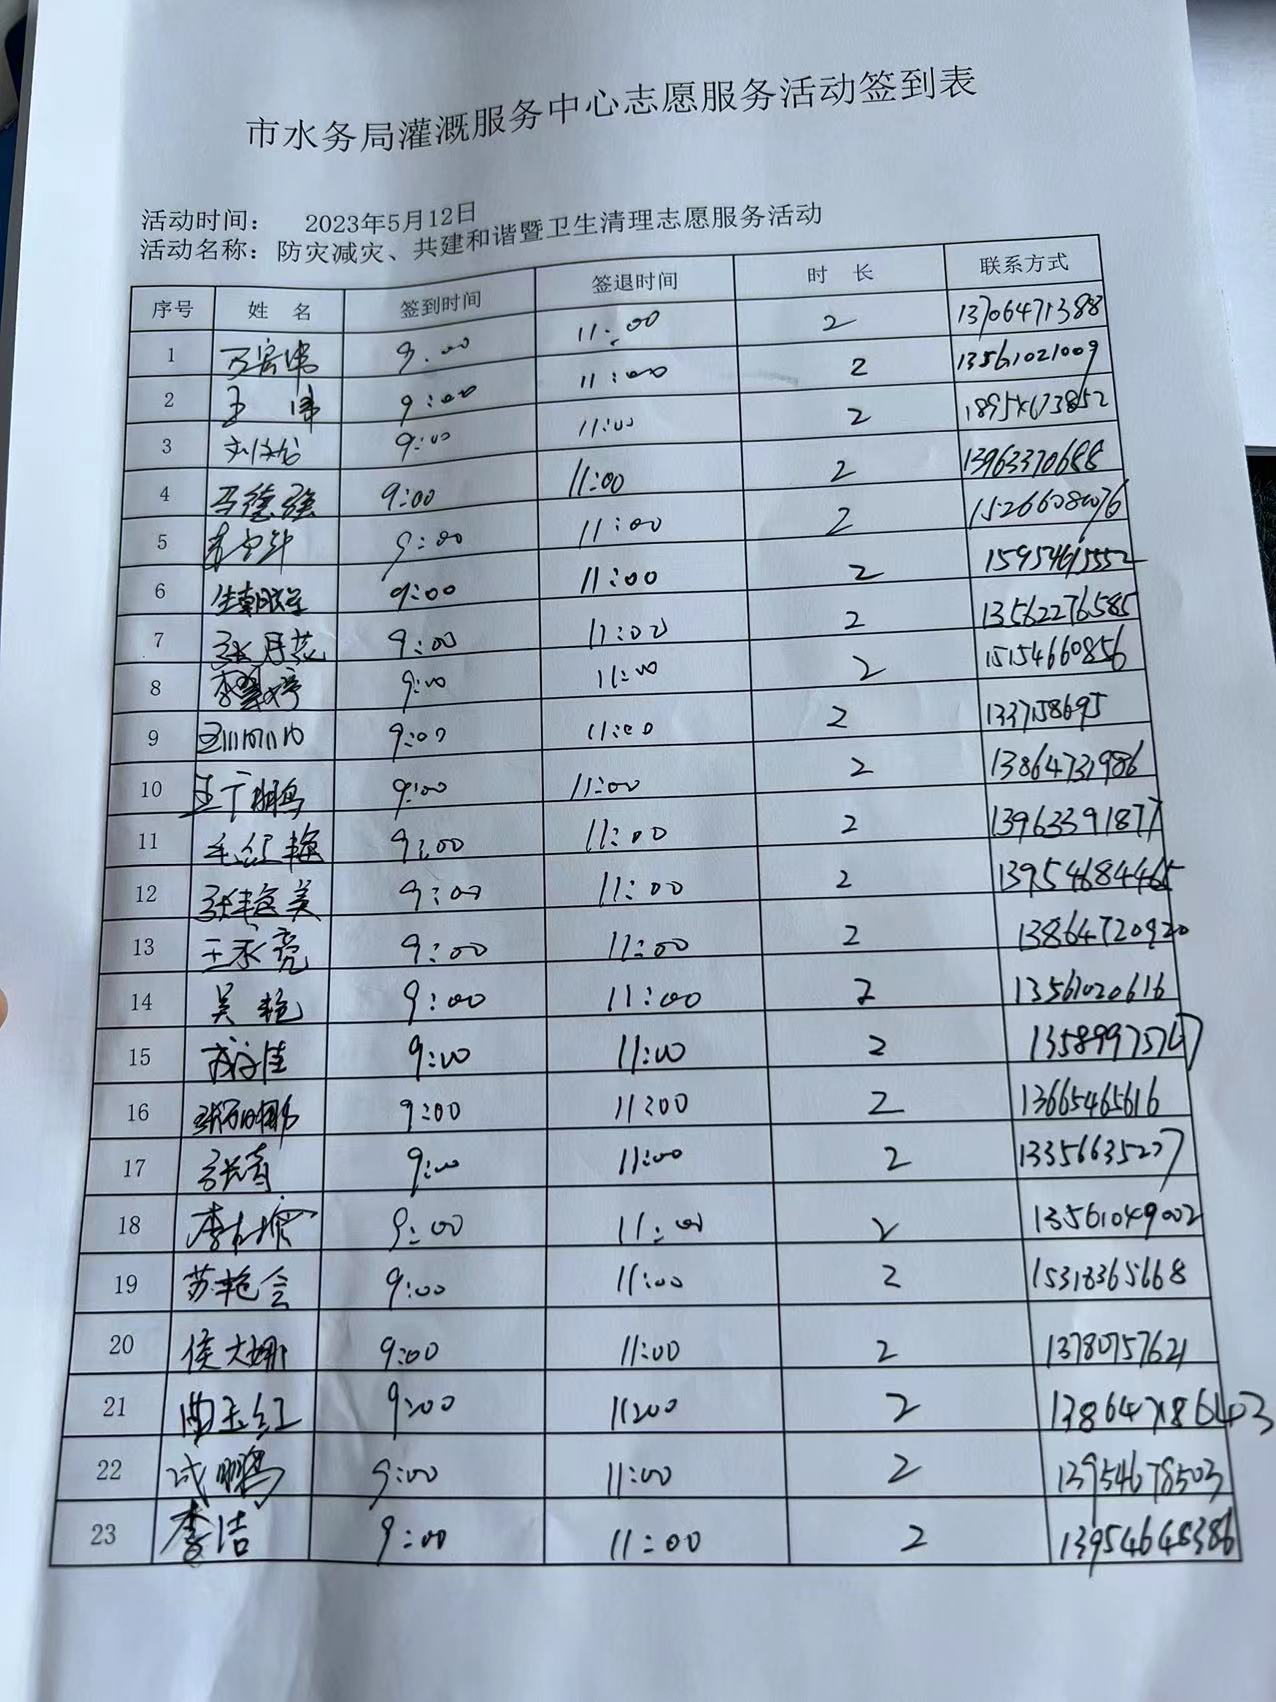 市水务局灌溉服务中心志愿服务活动签到表
活动时间： 2023年5月12日
活动名称：防灾减灾、共建和谐暨卫生清理志愿服务活动
序号 姓 名 签到时间 签退时间 时 长 联系方式
1 9:00 11:00 2 13706471388
2 王 伟 9:00 11:00 2 13561021009
3 9:00 11:00 2
4 马德强 9:00 11:00 2 13963370688
5 9:00 11:00 2 15266080076
6 9:00 11:00 2 15954615552
7 张月花 9:00 11:00 2 13562276585
8 9:00 11:00 2 15154660856
9 9:00 11:00 2
10 王广鹏 9:00 11:00 2
11 毛红梅 9:00 11:00 2 13963391877
12 张艳美 9:00 11:00 2 13954684465
13 王永亮 9:00 11:00 2 13864720920
14 吴艳 9:00 11:00 2 13561020616
15 9:00 11:00 2 13589975767
16 9:00 11:00 2 13665465616
17 张青 9:00 11:00 2 13356635227
18 9:00 11:00 2 13561049002
19 苏艳会 9:00 11:00 2 15318365668
20 侯大娜 9:00 11:00 2 13780757621
21 曲玉红 9:00 11:00 2
22 9:00 11:00 2 13954678503
23 李洁 9:00 11:00 2 13954648386